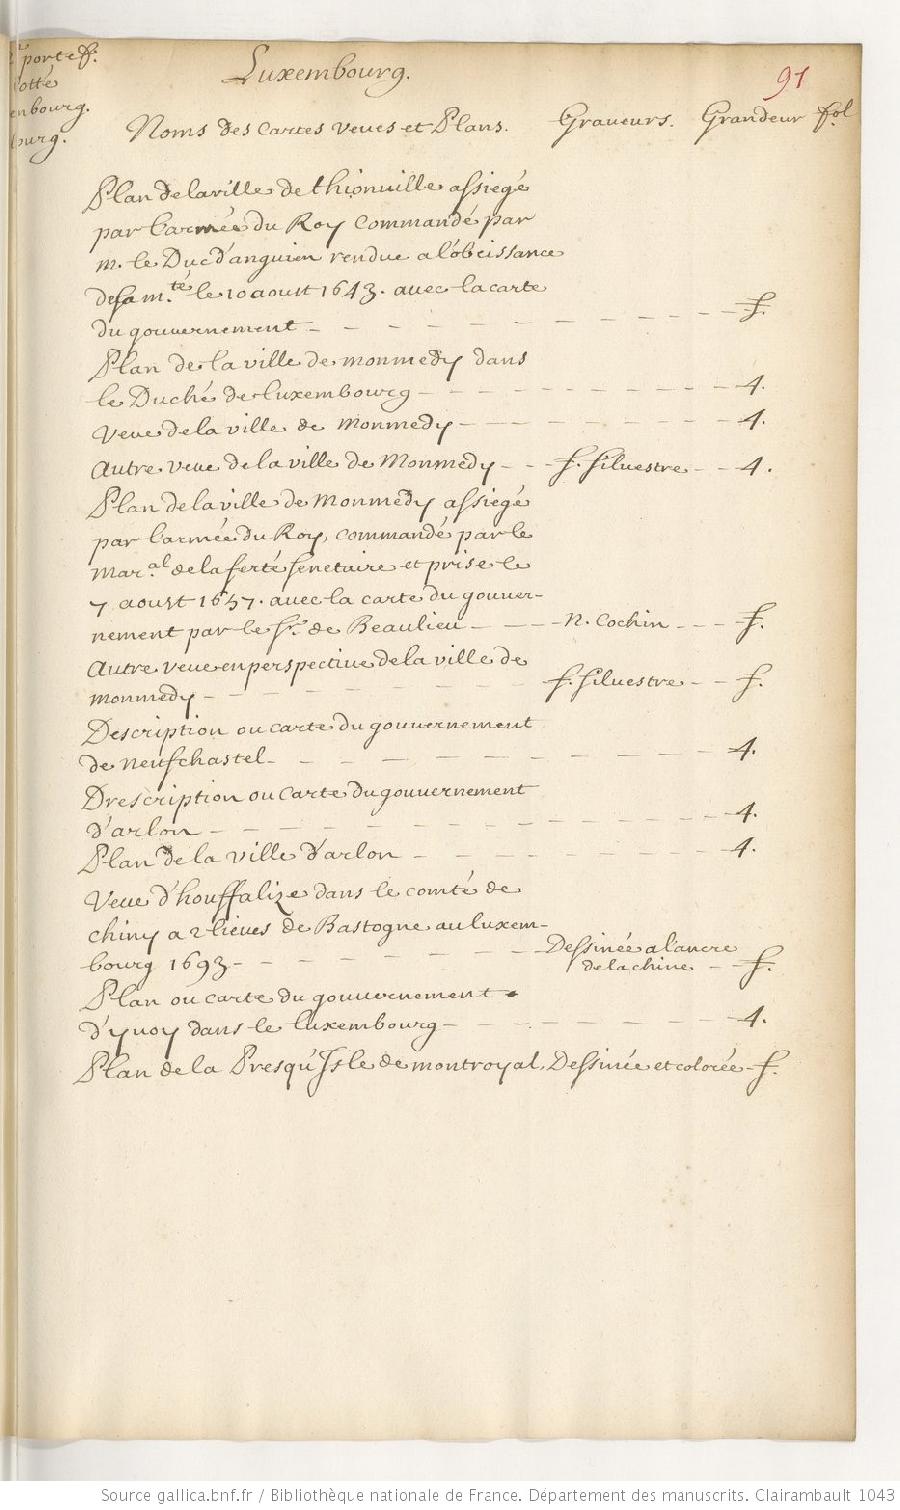 porte f.
Luxembourg.
91
cotté
enbourg.
ourg.
Noms des Cartes Veues et Plans. Graveurs. Grandeur fol
Plan de la ville de thionuille assiegé
par l'armée du Roy commandé par
m. le Duc d'anguien rendue a l'obeissance
de sa m.té le 10 aoust 1643. avec la carte
du gouvernement - - - - - - f.
Plan de la ville de monmedy dans
le Duché de luxembourg - - - - - - 4.
Veue de la ville de Monmedy - - - - - - 4.
Autre veue de la ville de Monmedy - - f. Silvestre - - 4.
Plan de la ville de Monmedy assiegé
par l'armée du Roy, commandé par le
Mar.al de la ferté senetaire et prise le
7 aoust 1657. avec la carte du gouver-
nement par le Sr. de Beaulieu - - - n. Cochin - - - f.
Autre veue en perspective de la ville de
monmedy - - - - - - f. Silvestre - - f.
Description ou carte du gouvernement
de neufchastel - - - - - - 4.
Drescription ou Carte du gouvernement
d'arlon - - - - - - 4.
Plan de la ville d'arlon - - - - - - 4.
Veue d'houffalize dans le comté de
chiny a 2 lieues de Bastogne au luxem-
bourg 1693 - - - - - - Dessinée a l'ancre
de la chine - - f.
Plan ou carte du gouvernement
d'yuoy dans le luxembourg - - - - - - 4.
Plan de la Presqu'Isle de montroyal, Dessinée et colorée - f.
Source gallica.bnf.fr / Bibliothèque nationale de France. Département des manuscrits. Clairambault 1043